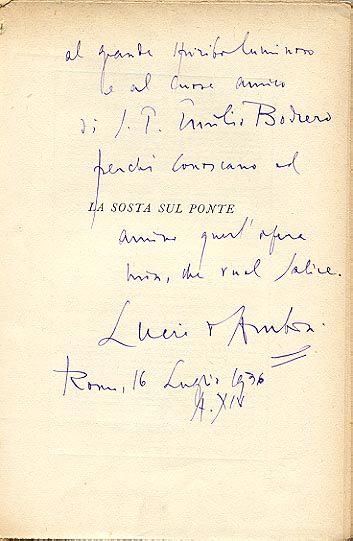 al grande spirito luminoso
e al cuore amico
di S. E. Emilio Bodrero
perché conoscano ed
LA SOSTA SUL PONTE
amino quest'opera
mia, che vuol salire.
Lucio d'Ambra.
Roma, 16 Luglio 1936
A. XIV